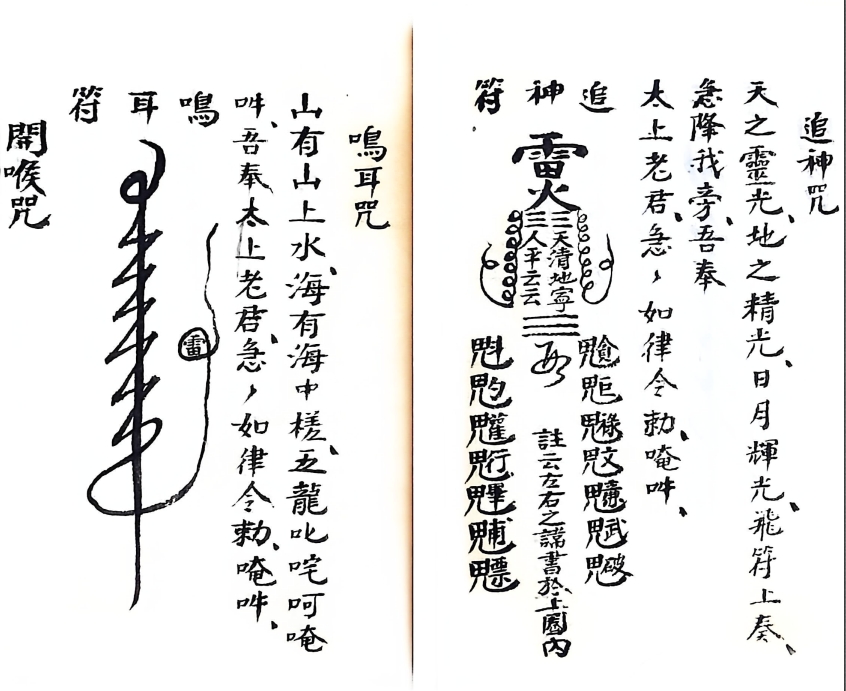 追神咒
天之靈光、地之精光、日月輝光、飛符上奏、
急降我旁、吾奉
太上老君、急々如律令勅、唵吽、
追神符
雷火
三天清地寧
三人平云云
魁
魓
魒
註云左右之諱書於上圈內
鳴耳咒
山有山上水、海有海中槎、五龍叱咤呵唵
吽、吾奉太上老君、急々如律令勅、唵吽、
鳴耳符
雷
開喉咒